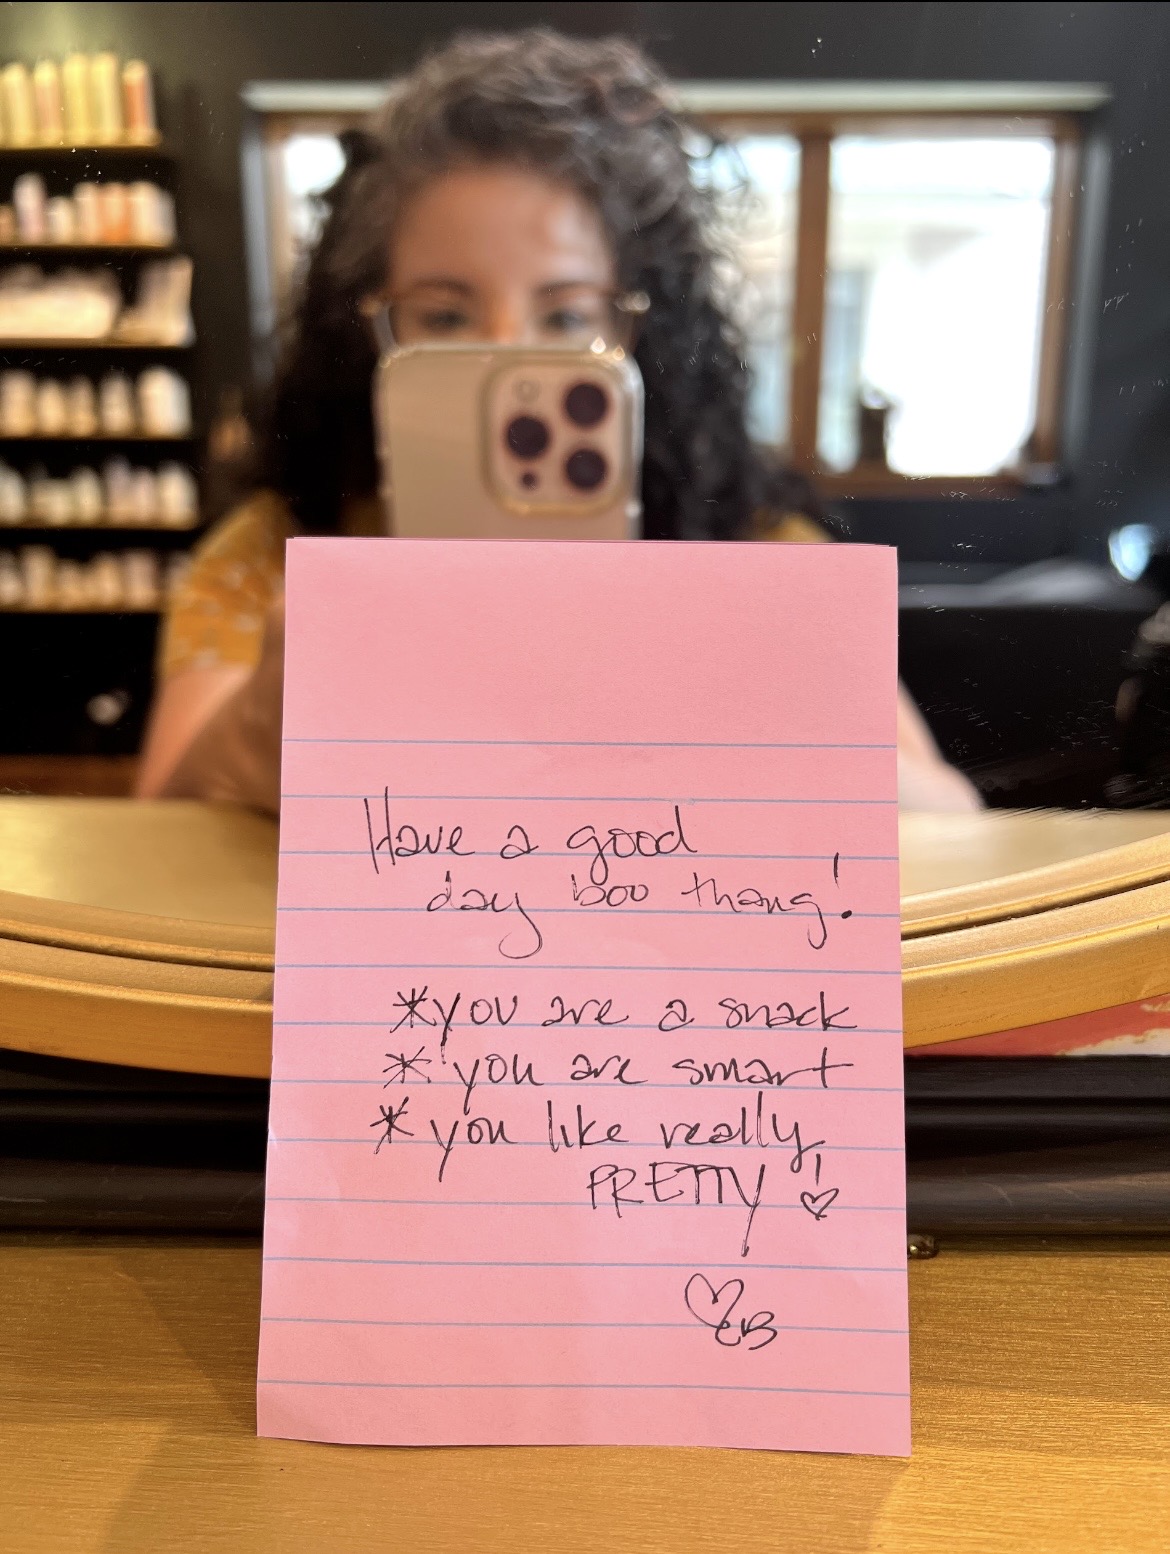 Have a good
day boo thang!
*you are a snack
*you are smart
*you like really,
PRETTY!
EB